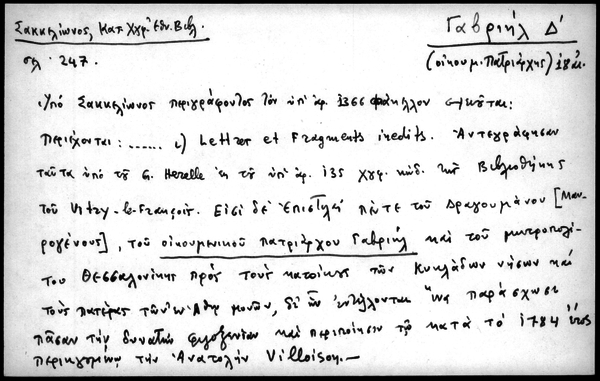 Σακκελίωνος, Κατ. Χγφ. Ἐθν. Βιβλ.
σελ. 247.
Γαβριήλ Δ'
(οἰκουμ. Πατριάρχης) 18 αἰ.
Ὑπό Σακκελίωνος περιγράφοντος τόν ὑπ' ἀρ. 1366 φάκελλον σημειοῦται:
Περιέχονται: ...... ι) Lettres et Fragments inedits. Ἀντεγράφησαν
ταῦτα ὑπό τοῦ G. Herelle ἐκ τοῦ ὑπ' ἀρ. 135 χγφ. κώδ. τῆς Βιβλιοθήκης
τοῦ Vitry-le-François. Εἰσί δέ ἐπιστολαί πέντε τοῦ Δραγουμάνου [Μαυ-
ρογένους], τοῦ οἰκουμενικοῦ πατριάρχου Γαβριήλ καί τοῦ μητροπολί-
του Θεσσαλονίκης πρός τούς κατοίκους τῶν Κυκλάδων νήσων καί
τούς πατέρας τῶν ἐν Ἄθῳ μονῶν, δι' ὧν ἐντέλλονται ἵνα παράσχωσι
πᾶσαν τήν δυνατήν φιλοξενίαν καί περιποίησιν τῷ κατά τό 1784 ἔτος
περιηγουμένῳ τήν Ἀνατολήν Villoison.—